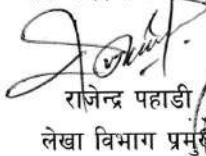 राजेन्द्र पहाडी
लेखा विभाग प्रमुख